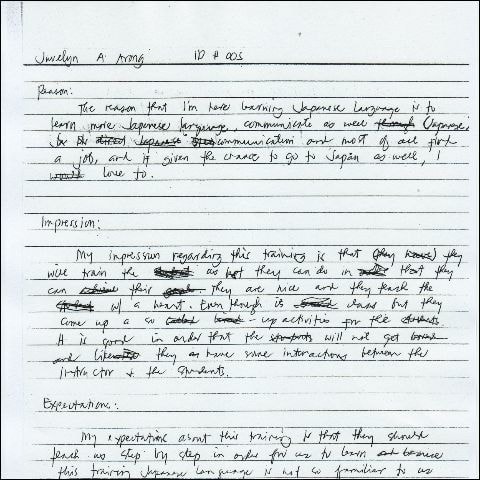 Juvelyn A. Arong ID # 005
Reason:
The reason that I'm here learning Japanese Language is to
learn more Japanese language, communicate as well through Japanese,
communication and most of all find
a job, and if given the chance to go to Japan as well, I
would love to.
Impression:
My impression regarding this training is that (they have) they
will train the as they can do in that they
can their goals. they are nice and they teach the
w/ a heart. Even though is class but they
come up a so -up activities for the students
it is good in order that the students will not get
and they as have some interactions between the
instructor & the students.
Expectations:
My expectations about this training is that they should
teach us step by step in order for us to learn and because
this training Japanese Language is not so familiar to us